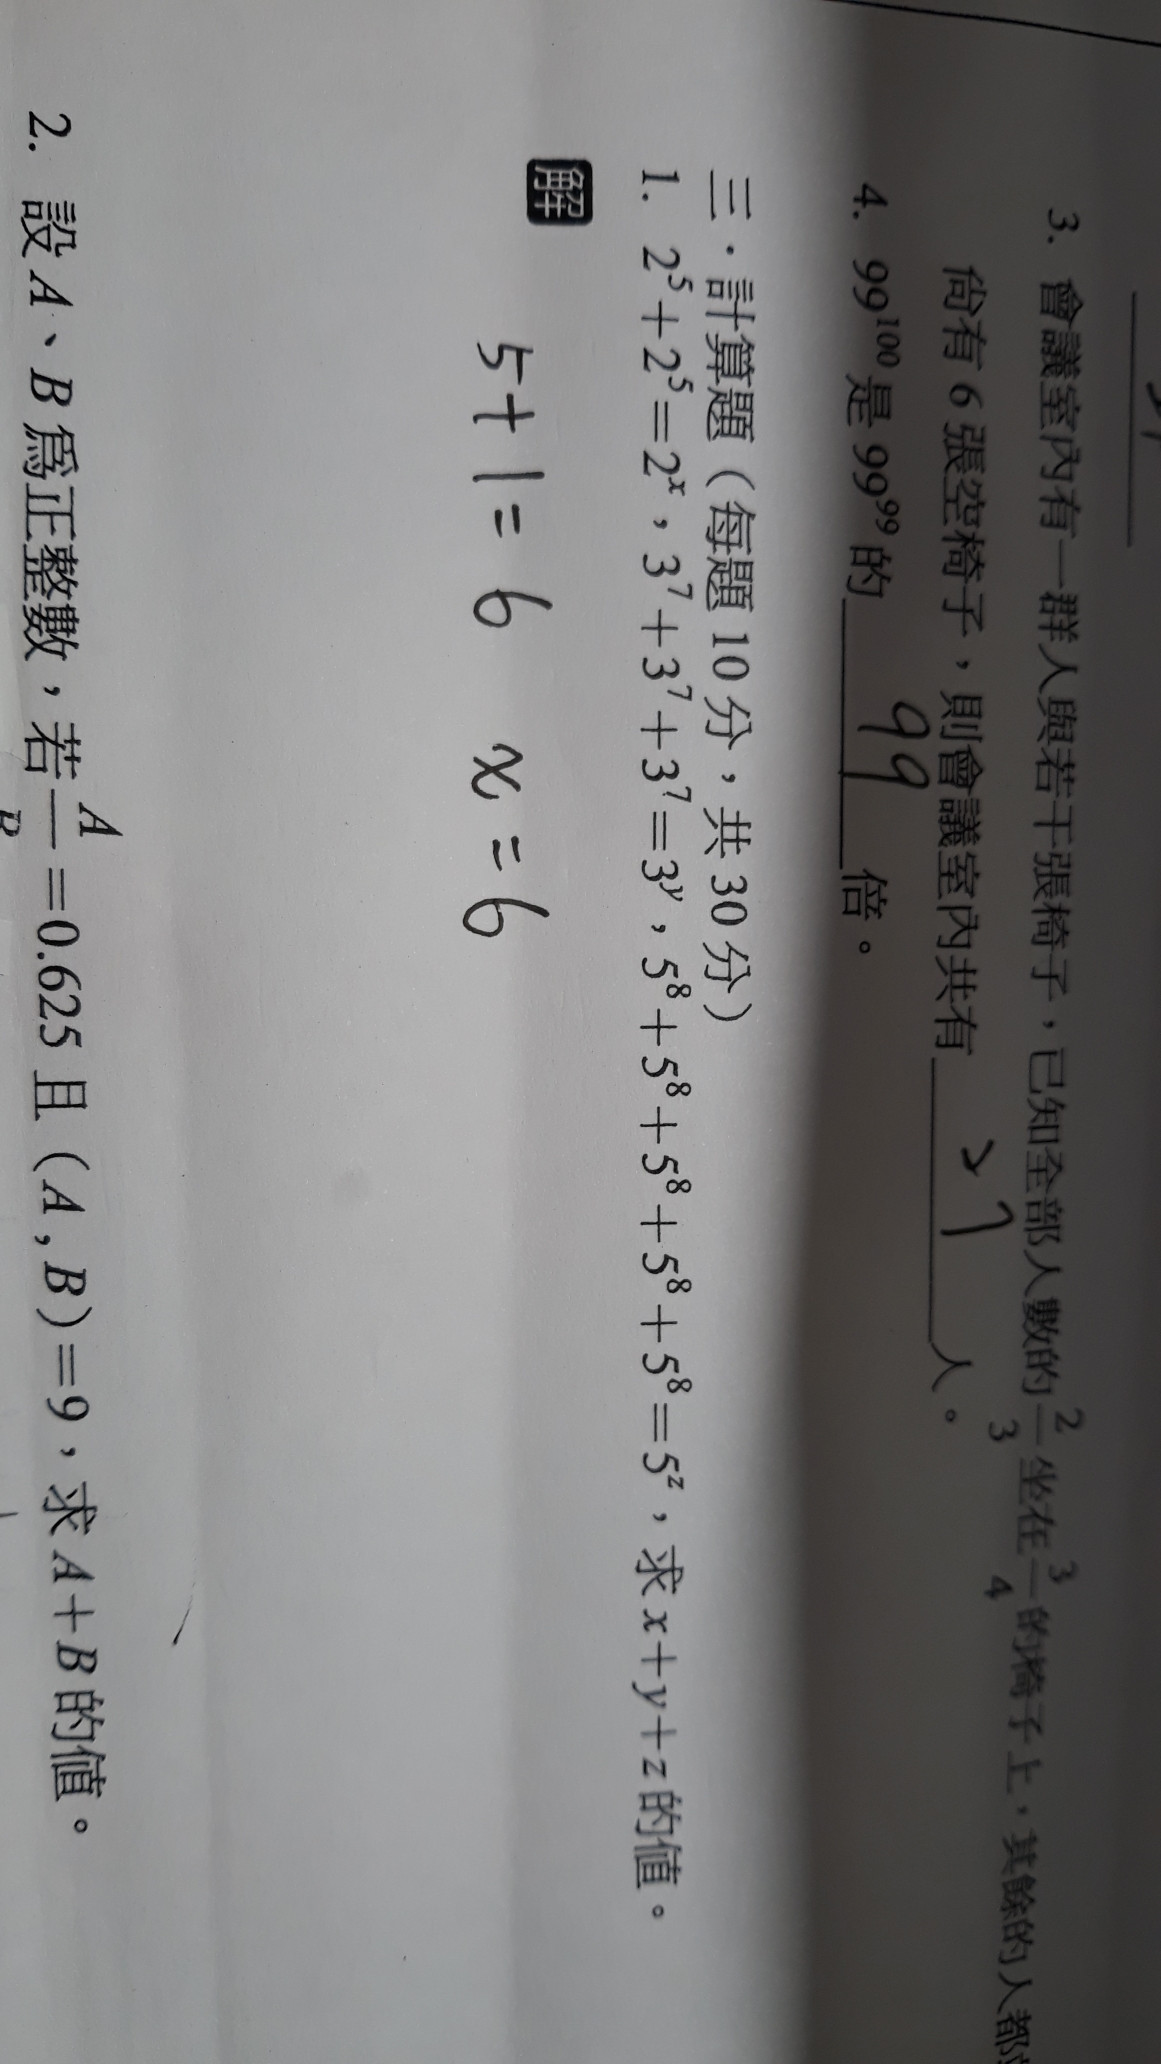 3. 會議室內有一群人與若干張椅子，已知全部人數的 2/3 坐在 3/4 的椅子上，其餘的人都
尚有 6 張空椅子，則會議室內共有 27 人。
4. 99¹⁰⁰ 是 99⁹⁹ 的 99 倍。
三．計算題（每題 10 分，共 30 分）
1. 2⁵+2⁵=2ˣ，3⁷+3⁷+3⁷=3ʸ，5⁸+5⁸+5⁸+5⁸+5⁸=5ᶻ，求 x+y+z 的值。
解
5+1=6 x=6
2. 設 A、B 為正整數，若 A/B =0.625 且（A , B）=9，求 A+B 的值。